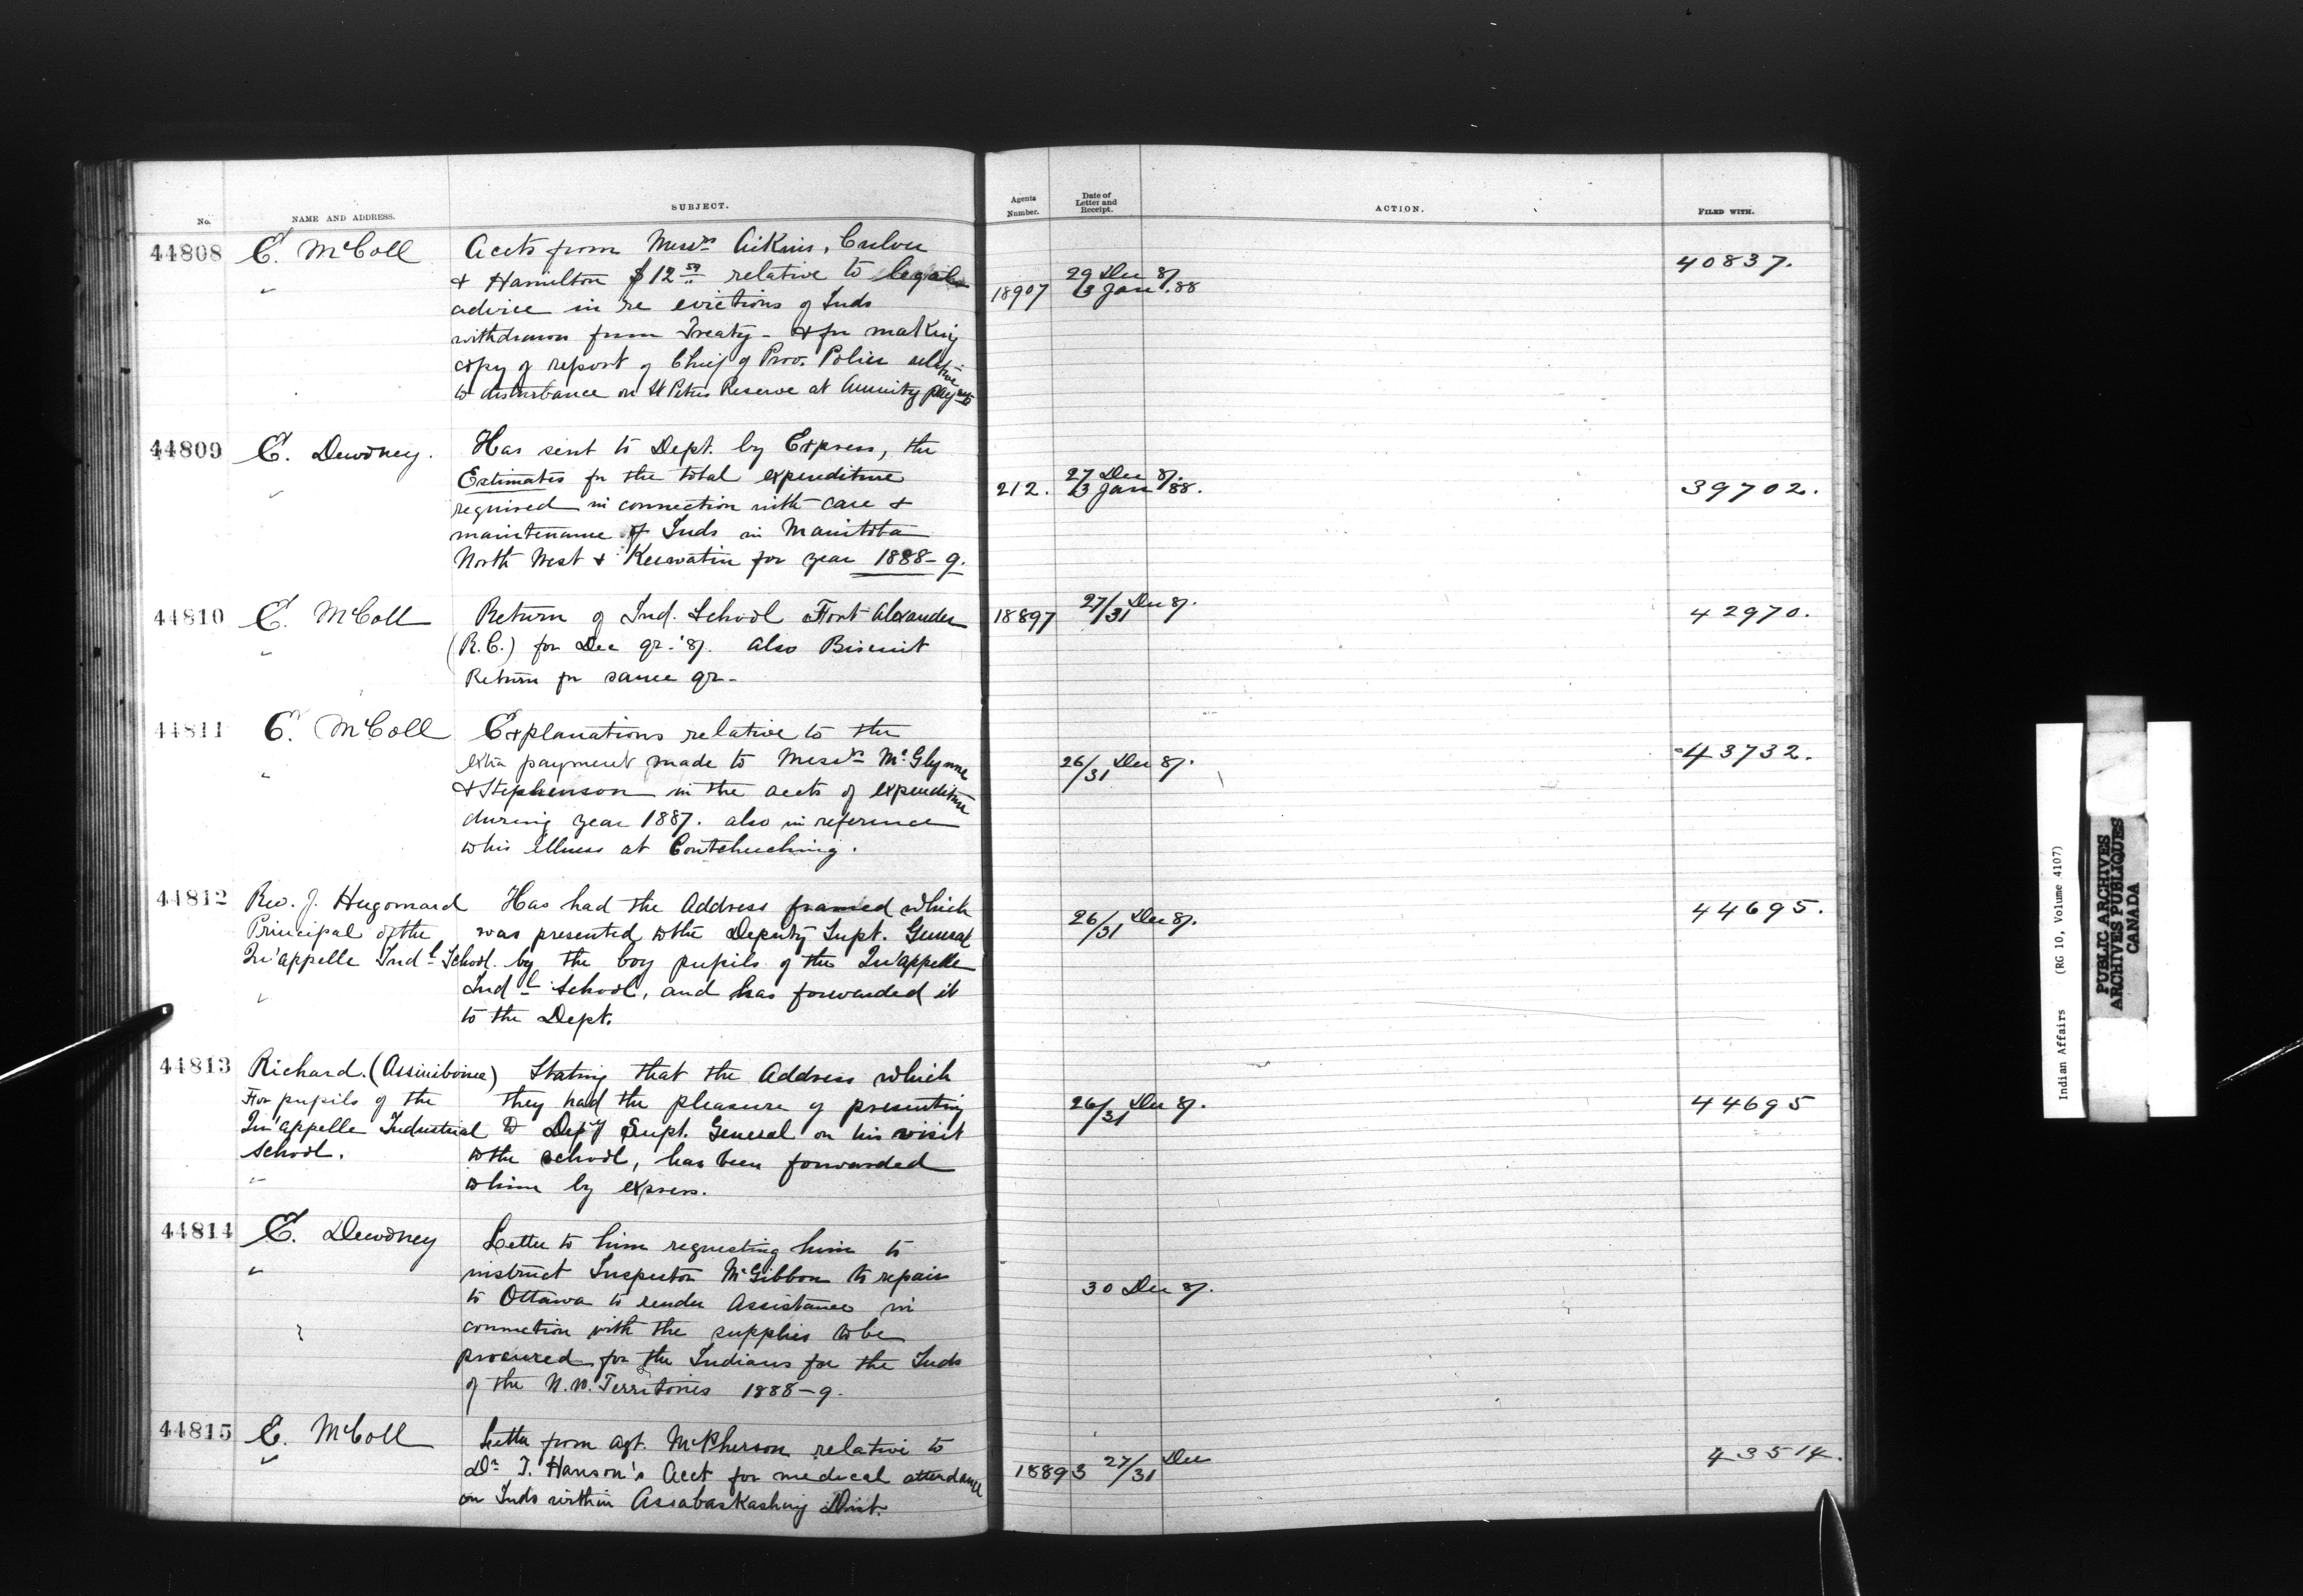 No.
NAME AND ADDRESS.
SUBJECT.
Agents Number.
Date of Letter and Receipt.
ACTION.
FILED WITH.
44808
E. McColl
"
Accts from Messrs Aikins, Culver
& Hamilton $12 50 relative to legal
advice in re evictions of Inds
withdrawn from Treaty - & for making
copy of report of Chief of Prov. Police relative
to disturbance on St Peters Reserve at Annuity paymts
18907
29 Dec 87.
3 Jan .88
40837.
44809
E. Dewdney.
"
Has sent to Dept. by Express, the
Estimates for the total expenditure
required in connection with care &
maintenance of Inds in Manitoba
North West & Keewatin for year 1888-9.
212.
27 Dec 87.
3 Jan 88.
39702.
44810
E. McColl
"
Return of Ind. School Fort Alexander
(R.C.) for Dec qr. '87. also Biscuit
Return for same qr-
18897
27/31 Dec 87.
42970.
44811
E. McColl
"
Explanations relative to the
extra payment made to Messrs McGlynne
& Stephenson in the accts of expenditure
during year 1887. also in reference
to his illness at Coutcheching.
26/31 Dec 87.
43732.
44812
Rev. J. Hugonnard
Principal of the
Qu'appelle Indl School.
"
Has had the Address framed which
was presented to the Deputy Supt. General
by the boy pupils of the Qu'appelle
Indl School, and has forwarded it
to the Dept.
26/31 Dec 87.
44695.
44813
Richard. (Assiniboine)
For pupils of the
Qu'appelle Industrial
School.
"
Stating that the Address which
they had the pleasure of presenting
to Depy Supt. General on his visit
to the school, has been forwarded
to him by express.
26/31 Dec 87.
44695
44814
E. Dewdney
"
Letter to him requesting him to
instruct Inspector McGibbon to repair
to Ottawa to render Assistance in
connection with the supplies to be
procured for the Indians for the Inds
of the N.W. Territories 1888-9.
30 Dec 87.
44815
E. McColl
"
Letter from Agt. McPherson relative to
Dr T. Hanson's Acct for medical attendance
on Inds within Assabaskashing Dist.
18893
27/31 Dec
43514.
Indian Affairs (RG 10, Volume 4107)
PUBLIC ARCHIVES
ARCHIVES PUBLIQUES
CANADA